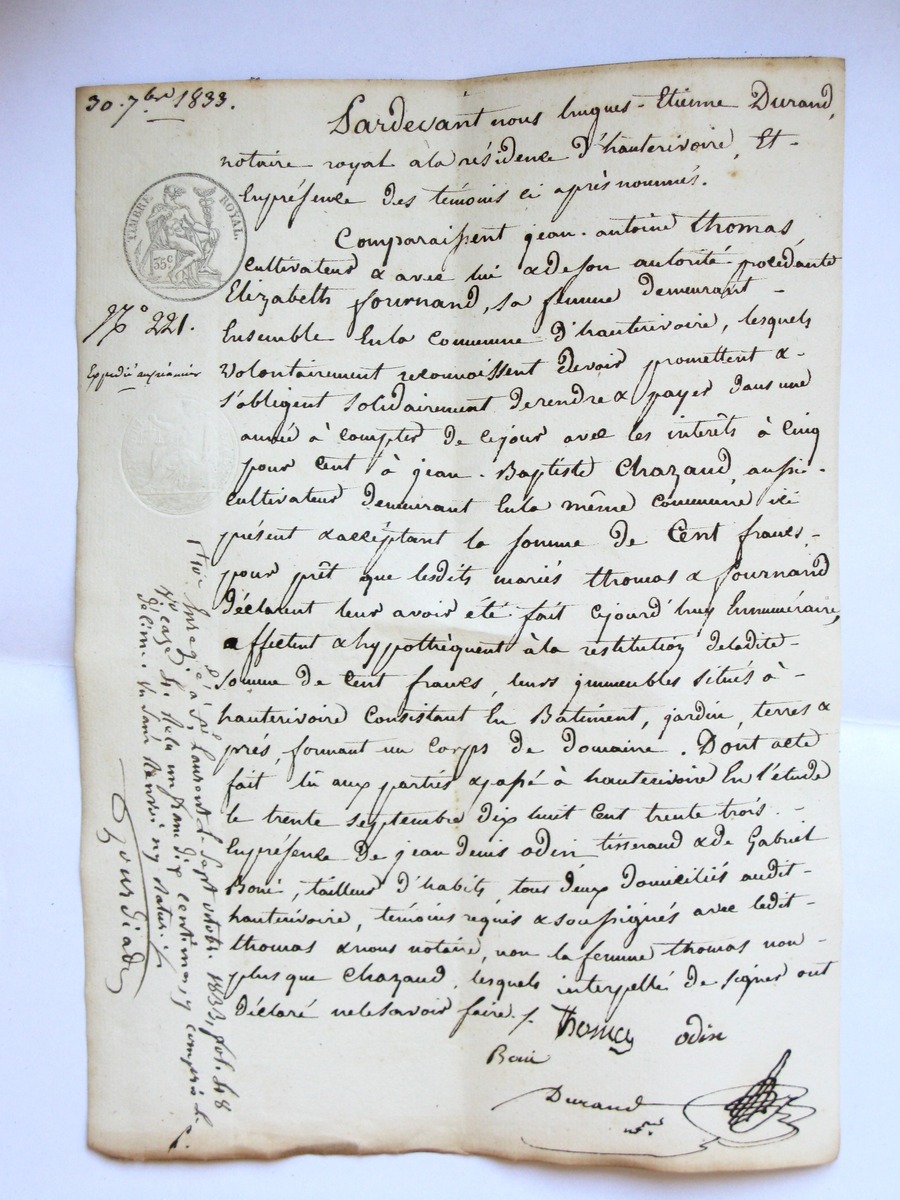 30. 7bre 1833.
Pardevant nous hugues-Etienne Durand,
notaire royal à la résidence d'hauterivoire, Et-
Enprésence des témoins ci après nommés.
TIMBRE ROYAL.
35c
Comparaissent jean-antoine thomas
cultivateur & avec lui & deson autorité procédante
Elizabeth fournand, sa femme demeurant-
Ensemble Enla Commune d'hauterivoire, lesquels
N° 221.
volontairement reconnoissent devoir promettent &-
s'obligent solidairement derendre & payer dans une
année à compter de cejour avec les intérêts à cinq
pour cent à jean-Baptiste Chazaud, aussi-
cultivateur demeurant Enla même commune ici
présent & acceptant la somme de Cent francs,-
pour prêt que lesdits mariés thomas & fournand
déclarent leur avoir été fait cejourd'huy Ennuméraire,
affectent & hypothèquent à la restitution deladite-
somme de Cent francs, leurs immeubles situés à-
hauterivoire Consistant En Batiment, jardin, terres &
prés, formant un Corps de Domaine. Dont acte
fait lû aux parties & passé à hauterivoire En l'étude
le trente septembre dix huit cent trente trois.-
Enprésence de jean denis odin tisserand & de Gabriel
Boni, tailleur d'habits, tous deux domiciliés audit-
hauterivoire, témoins requis & soussignés avec ledit-
thomas & nous notaire, non la femme thomas non-
plus que Chazaud, lesquels interpellé de signer ont
déclaré nelesavoir faire./.
Thomas odin
Boni
Durand
nre.
Enreg.é à St Laurent le sept octobre 1833, fol. 48
Ve case 4. Reçu un franc dix centimes, y compris le